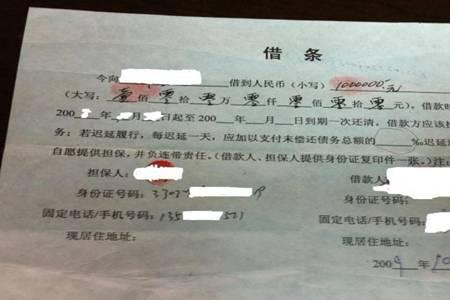 借条
今向 借到人民币（小写）1000000元
（大写：壹佰零拾零万零仟零佰零拾零元），借款时
200 年 月 日起至 200 年 月 日到期一次还清。借款方应该
务：若迟延履行，每迟延一天，应加以支付未偿还债务总额的 ‰迟延
自愿提供担保，并负连带责任。（借款人、担保人提供身份证复印件一张。）注：
担保人： 借款人
身份证号码：3307 身份证号码：
固定电话/手机号码：135 521 固定电话/手机号码
现居住地址： 现居住地址：
2009年10